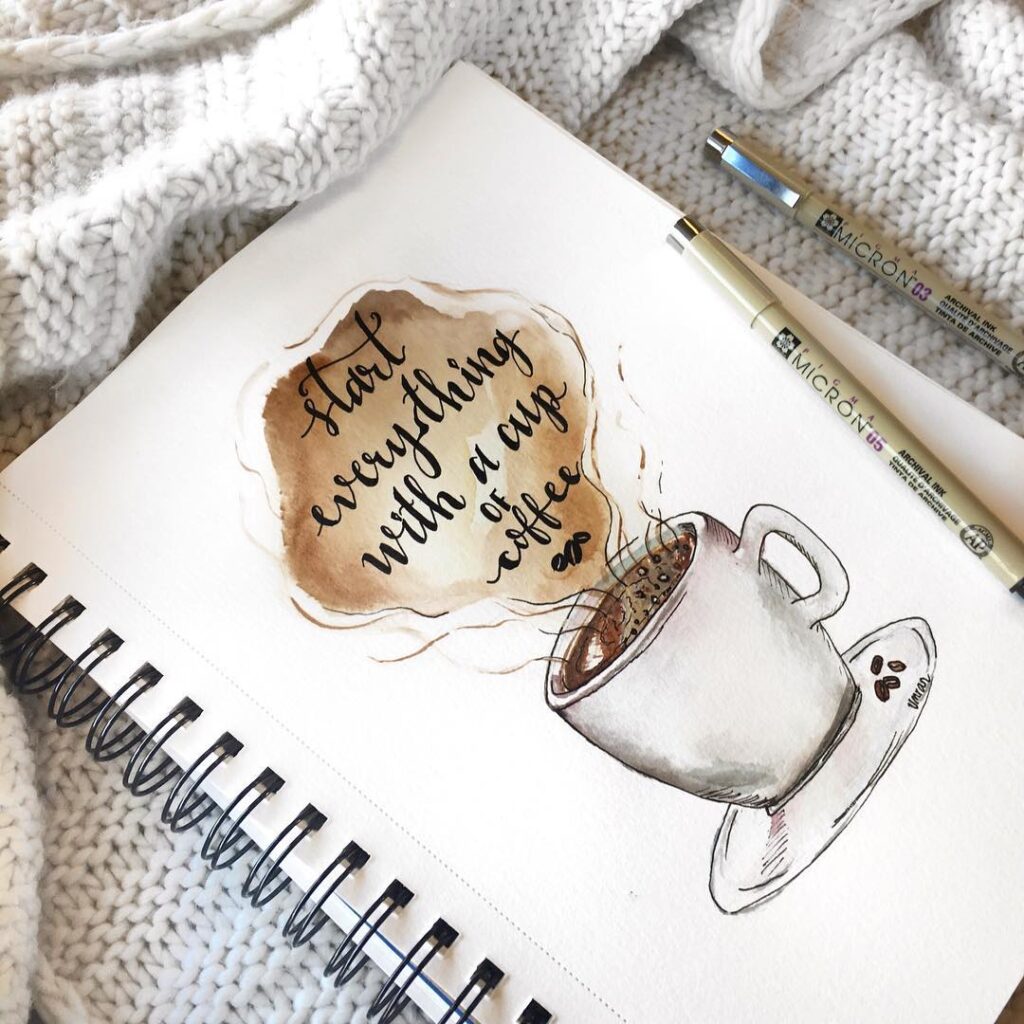 start
everything
with a cup
of
coffee
SAKURA
MICRON 03
ARCHIVAL INK
QUALITÉ D'ARCHIVAGE
TINTA DE ARCHIVE
MICRON 05
ARCHIVAL INK
QUALITÉ D'ARCHIVAGE
TINTA DE ARCHIVE
AP